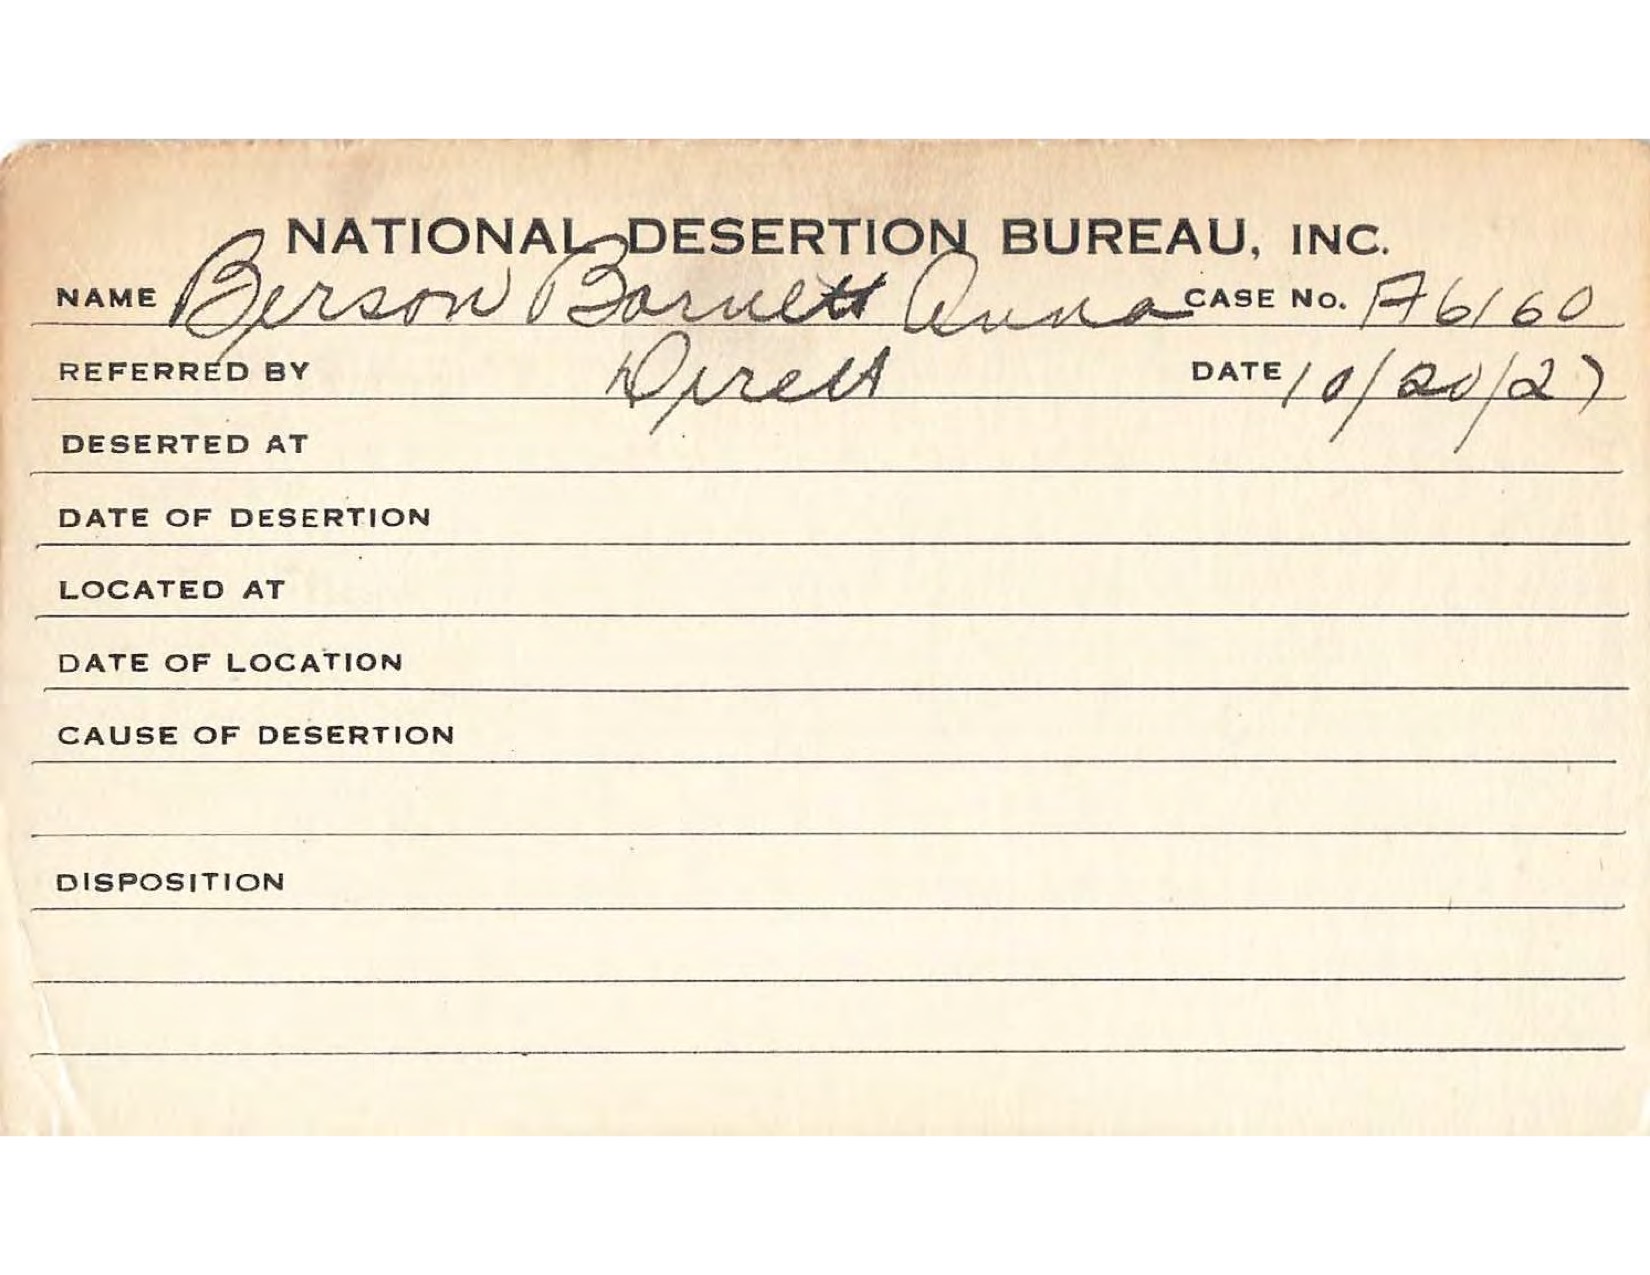 NATIONAL DESERTION BUREAU, INC.
NAME Berson Barnett Anna CASE No. A6160
REFERRED BY Direct DATE 10/20/27
DESERTED AT
DATE OF DESERTION
LOCATED AT
DATE OF LOCATION
CAUSE OF DESERTION
DISPOSITION